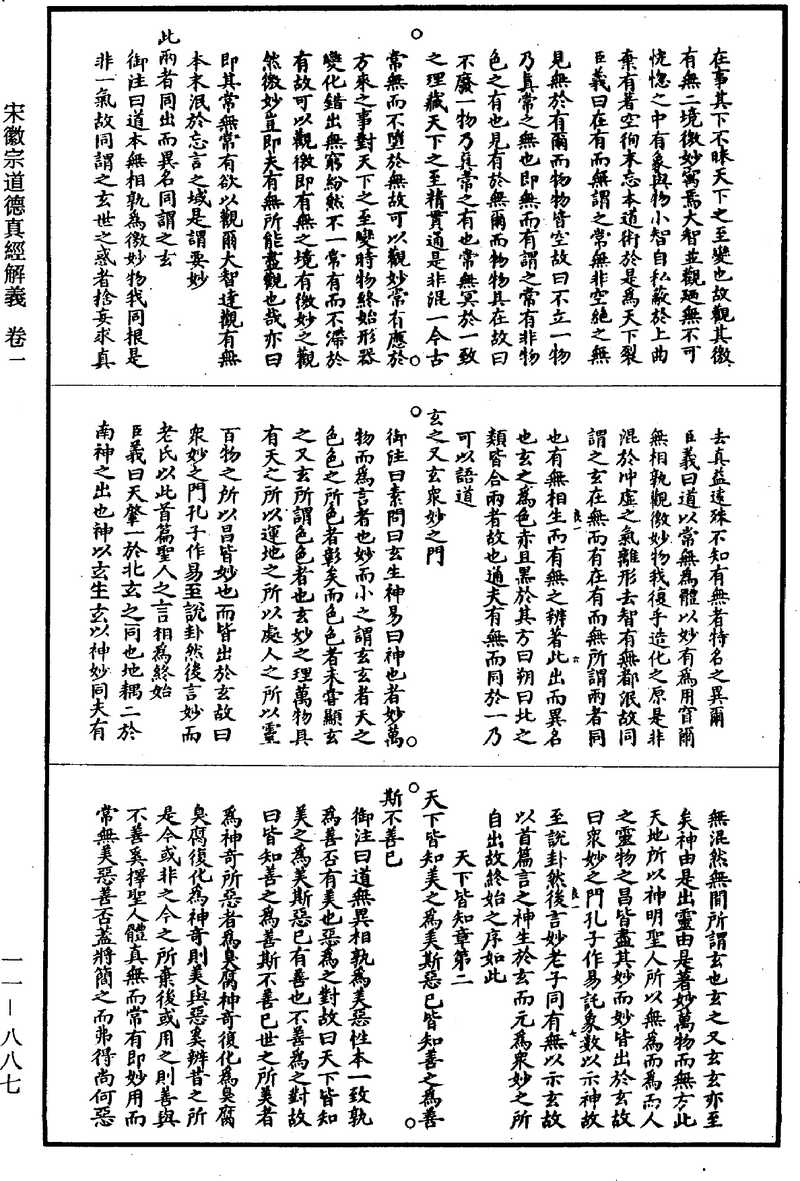 宋徽宗道德真經解義　卷一
一一—八八七
在事其下不昧天下之至變也故觀其徼
有無二境徼妙寓焉大智並觀廼無不可
恍惚之中有象與物小智自私蔽於上曲
棄有著空徇末忘本道術於是為天下裂
臣義曰在有而無謂之常無非空絶之無
見無於有爾而物物皆空故曰不立一物
乃真常之無也即無而有謂之常有非物
色之有也見有於無爾而物物具在故曰
不廢一物乃真常之有也常無冥於一致
之理藏天下之至精貫通是非混一今古
常無而不墮於無故可以觀妙常有應於
方來之事對天下之至變時物終始形器
變化錯出無窮紛然不一常有而不滯於
有故可以觀徼即有無之境有徼妙之觀
然徼妙豈即夫有無所能盡觀也哉亦曰
即其常無常有欲以觀爾大智達觀有無
本末泯於忘言之域是謂要妙
此兩者同出而異名同謂之玄
御注曰道本無相孰為徼妙物我同根是
非一氣故同謂之玄世之惑者捨妄求真
去真益遠殊不知有無者特名之異爾
臣義曰道以常無為體以妙有為用窅爾
無相孰觀徼妙物我復乎造化之原是非
混於冲虛之氣離形去智有無都泯故同
謂之玄在無而有在有而無所謂兩者同
也有無相生而有無之辨著此出而異名
也玄之為色赤且黑於其方曰朔曰北之
類皆合兩者故也通夫有無而同於一乃
可以語道
玄之又玄衆妙之門
御注曰素問曰玄生神易曰神也者妙萬
物而為言者也妙而小之謂玄玄者天之
色色之所色者彰矣而色色者未嘗顯玄
之又玄所謂色色者也玄妙之理萬物具
有天之所以運地之所以處人之所以靈
百物之所以昌皆妙也而皆出於玄故曰
衆妙之門孔子作易至說卦然後言妙而
老氏以此首篇聖人之言相為終始
臣義曰天肇一於北玄之同也地耦二於
南神之出也神以玄生玄以神妙同夫有
無混然無間所謂玄也玄之又玄玄亦至
矣神由是出靈由是著妙萬物而無方此
天地所以神明聖人所以無為而為而人
之靈物之昌皆盡其妙而妙皆出於玄故
曰衆妙之門孔子作易託象數以示神故
至說卦然後言妙老子同有無以示玄故
以首篇言之神生於玄而元為衆妙之所
自出故終始之序如此
天下皆知章第二
天下皆知美之為美斯惡已皆知善之為善
斯不善已
御注曰道無異相孰為美惡性本一致孰
為善否有美也惡為之對故曰天下皆知
美之為美斯惡已有善也不善為之對故
曰皆知善之為善斯不善已世之所美者
為神奇所惡者為臭腐神奇復化為臭腐
臭腐復化為神奇則美與惡奚辨昔之所
是今或非之今之所棄後或用之則善與
不善奚擇聖人體真無而常有即妙用而
常無美惡善否蓋將簡之而弗得尚何惡